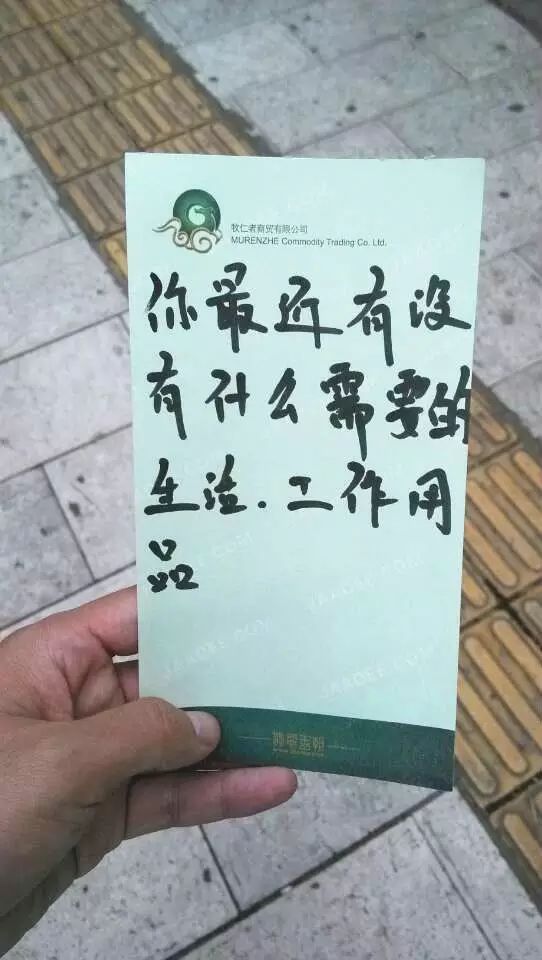 牧仁者商贸有限公司
MURENZHE Commodity Trading Co. Ltd.
你最近有没
有什么需要的
生活.工作用
品